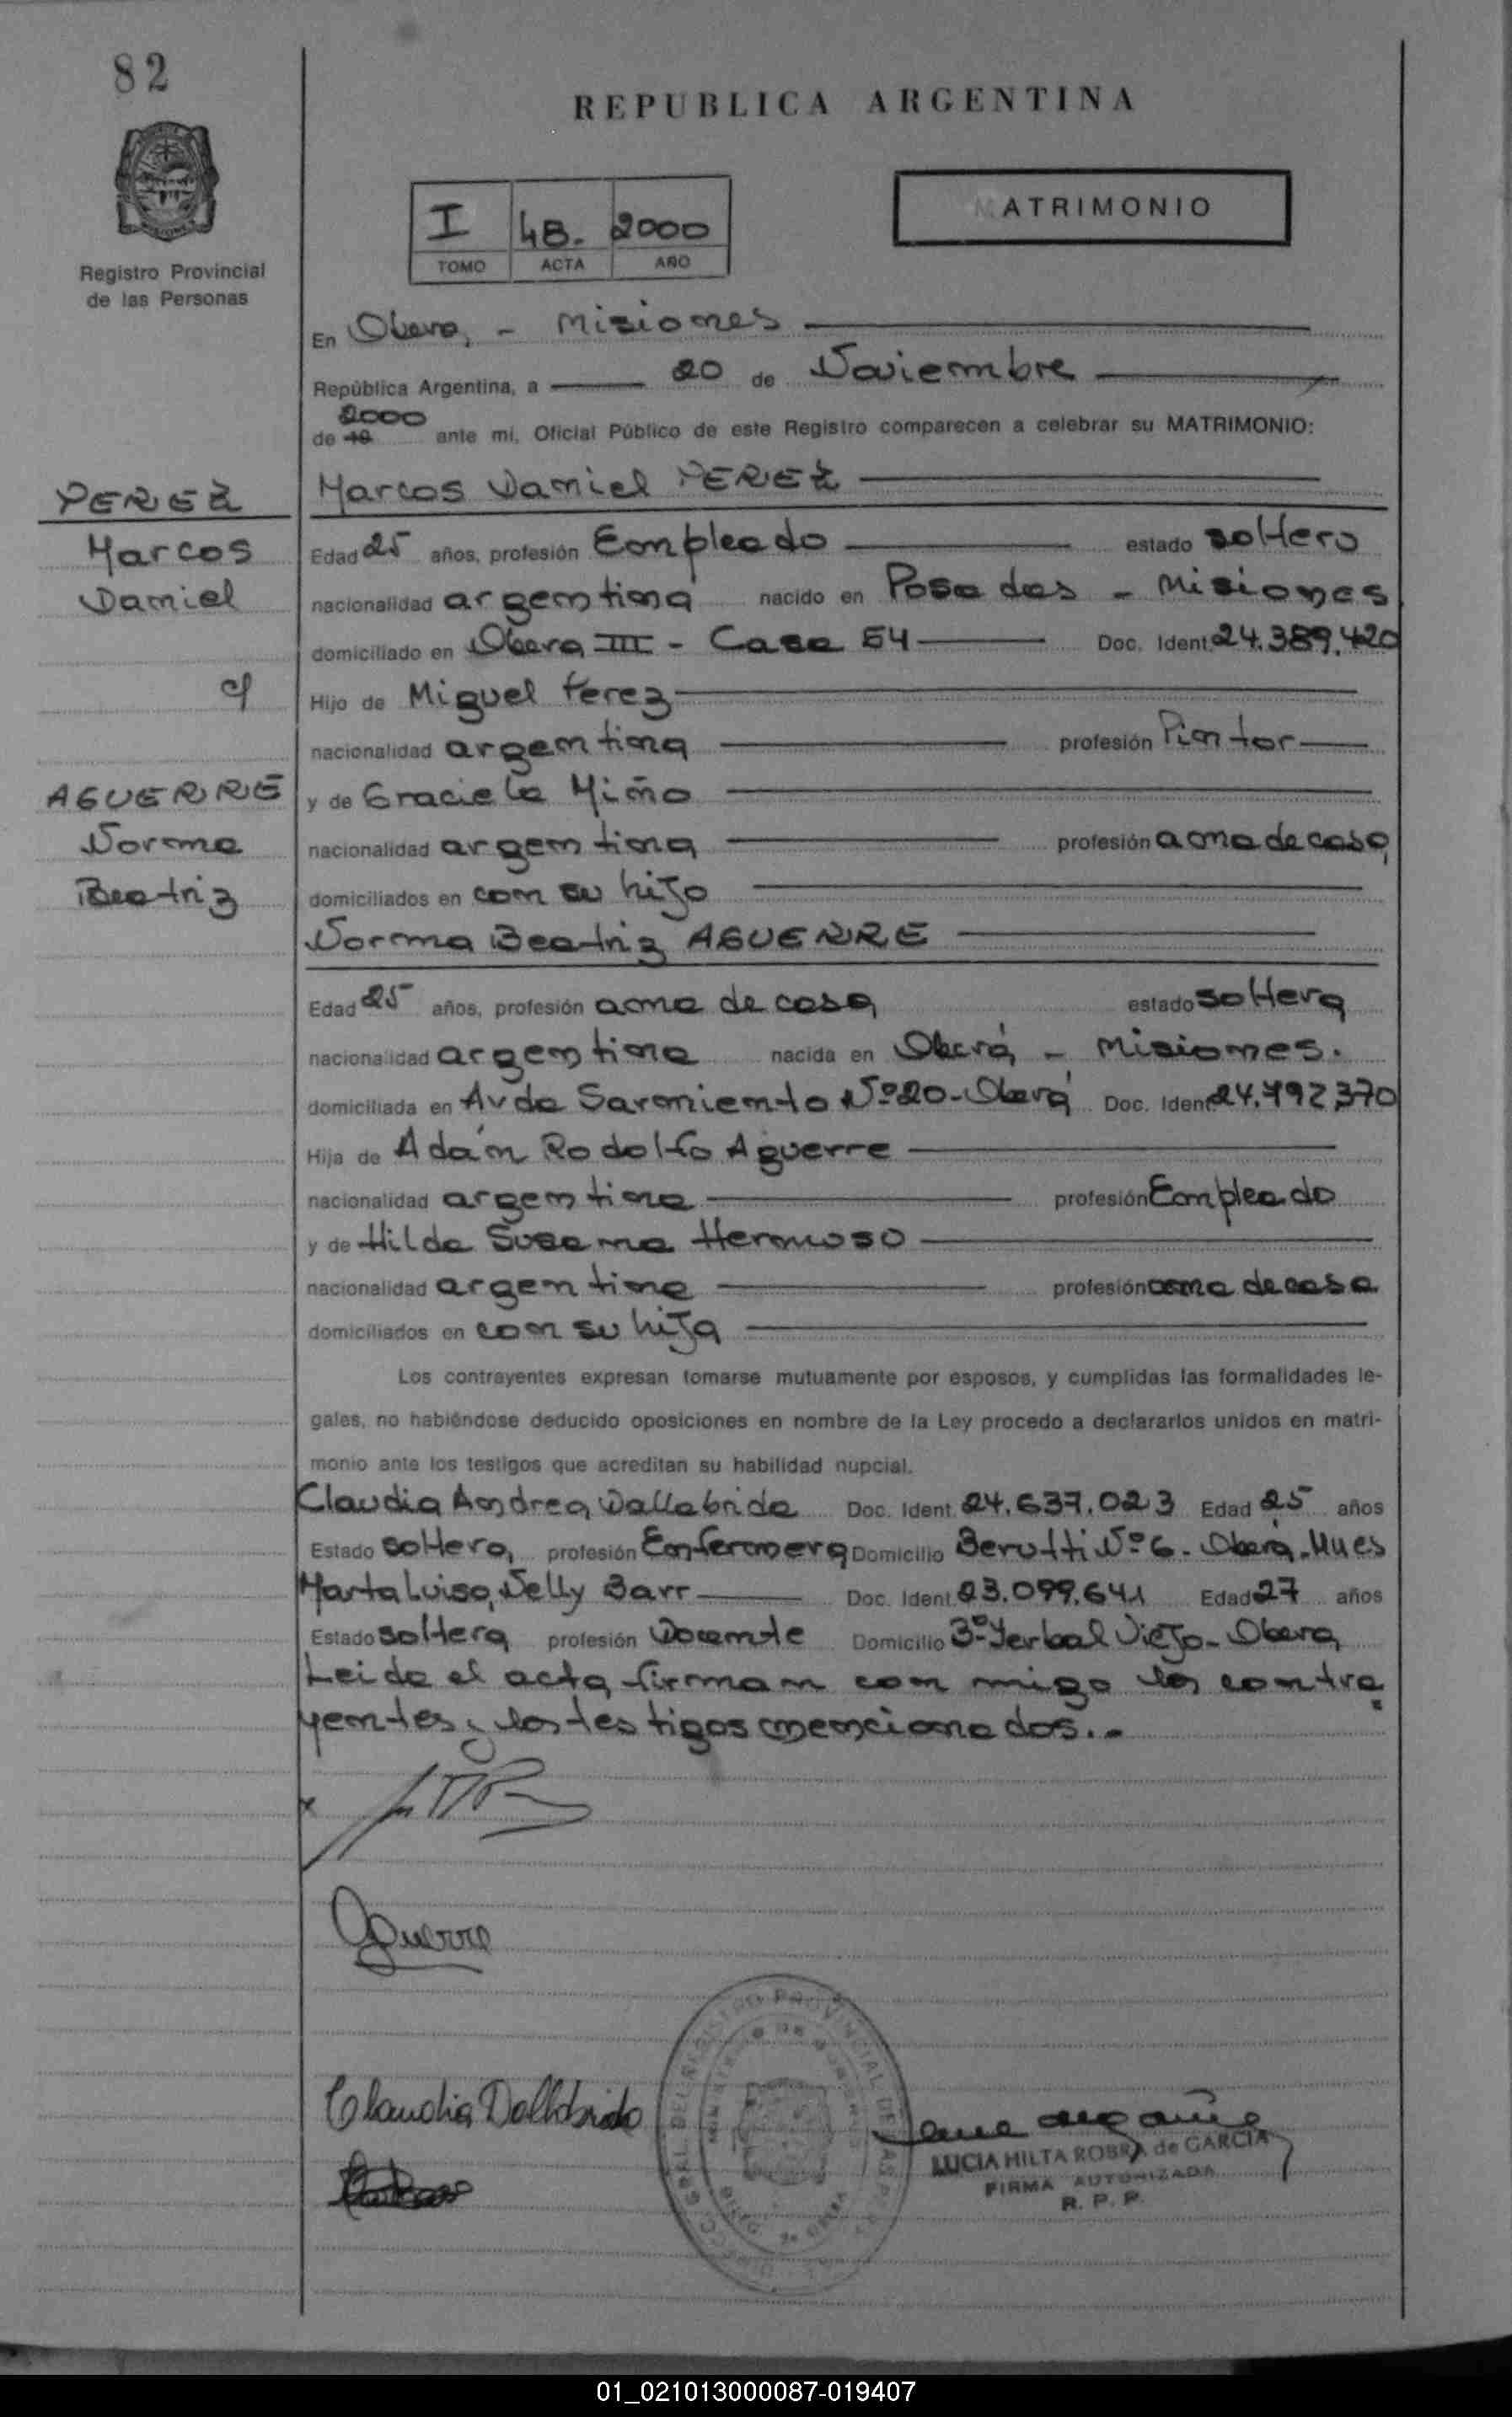 82
REPUBLICA ARGENTINA
MATRIMONIO
I 48. 2000
TOMO ACTA AÑO
Registro Provincial
de las Personas
En Obera, - Misiones
República Argentina, a 20 de Noviembre
2000
de 19 ante mi, Oficial Público de este Registro comparecen a celebrar su MATRIMONIO:
PEREZ
Marcos
Daniel
c/
AGUERRE
Norma
Beatriz
Marcos Daniel PEREZ
Edad 25 años, profesión Empleado estado soltero
nacionalidad argentina nacido en Posadas - Misiones
domiciliado en Obera III - Casa 54 Doc. Ident. 24.389.420
Hijo de Miguel Perez
nacionalidad argentina profesión Pintor
y de Graciela Miño
nacionalidad argentina profesión ama de casa
domiciliados en con su hijo
Norma Beatriz AGUERRE
Edad 25 años, profesión ama de casa estado soltera
nacionalidad argentina nacida en Oberá - Misiones.
domiciliada en Avda Sarmiento Nº 20 - Oberá Doc. Ident. 24.792.370
Hija de Adán Rodolfo Aguerre
nacionalidad argentina profesión Empleado
y de Hilda Susana Hermoso
nacionalidad argentina profesión ama de casa
domiciliados en con su hija
Los contrayentes expresan tomarse mutuamente por esposos, y cumplidas las formalidades le-
gales, no habiéndose deducido oposiciones en nombre de la Ley procedo a declararlos unidos en matri-
monio ante los testigos que acreditan su habilidad nupcial.
Claudia Andrea Dallabrida Doc. Ident. 24.637.023 Edad 25 años
Estado soltera, profesión Enfermera Domicilio Berutti Nº 6 - Oberá - Mnes
Marta Luisa Nelly Barr Doc. Ident. 23.099.641 Edad 27 años
Estado soltera profesión Docente Domicilio 3º Yerbal Viejo - Obera
Leida el acta firman con migo los contra
yentes y los testigos mencionados.-
Aguerre
Claudia Dallabrida
LUCIA HILTA ROBRA de GARCIA
FIRMA AUTORIZADA
R. P. P.
01_021013000087-019407